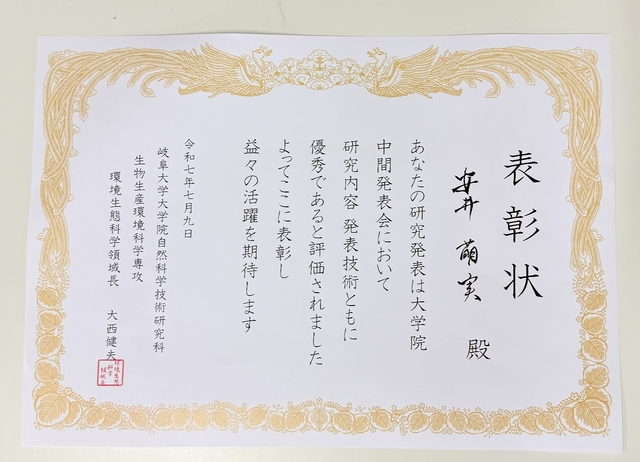 表彰状
安井 萌実 殿
あなたの研究発表は大学院
中間発表会において
研究内容 発表技術ともに
優秀であると評価されました
よってここに表彰し
益々の活躍を期待します
令和七年七月九日
岐阜大学大学院自然科学技術研究科
生物生産環境科学専攻
環境生態科学領域長 大西健夫